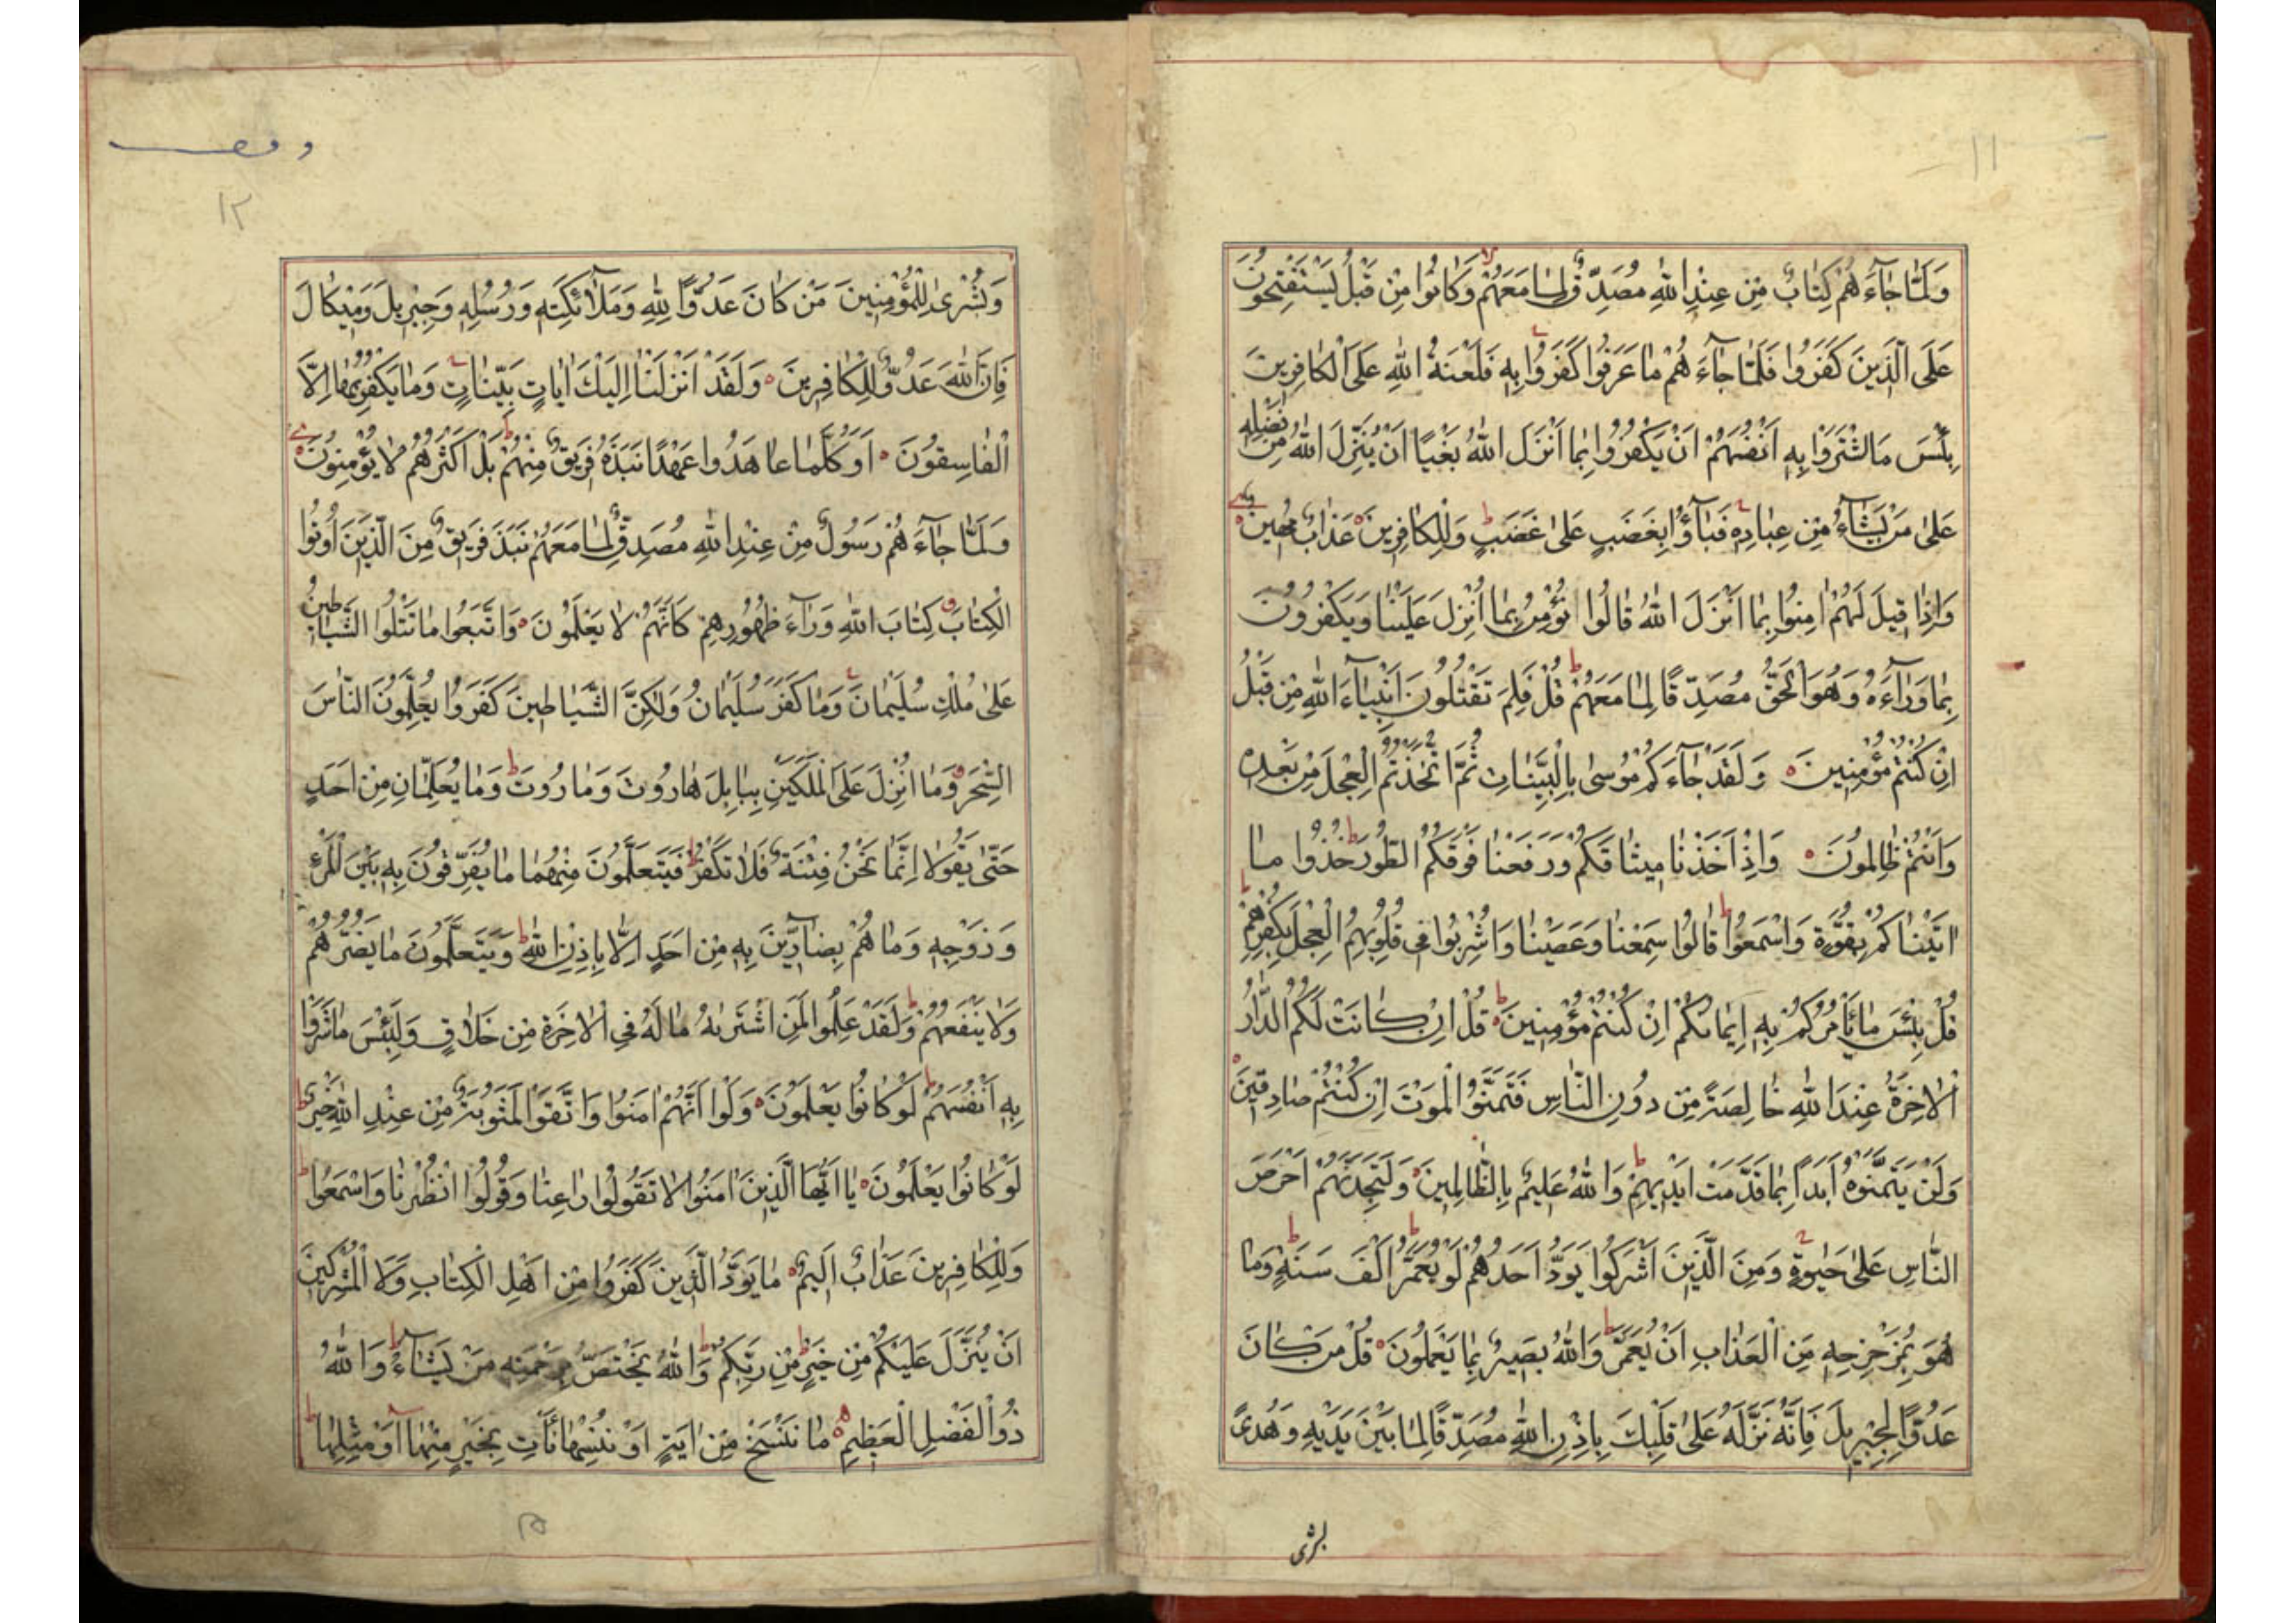 ١١
وَلَمَّا جَاءَهُمْ كِتَابٌ مِنْ عِنْدِ اللهِ مُصَدِّقٌ لِمَا مَعَهُمْ وَكَانُوا مِنْ قَبْلُ يَسْتَفْتِحُونَ
عَلَى الَّذِينَ كَفَرُوا فَلَمَّا جَاءَهُمْ مَا عَرَفُوا كَفَرُوا بِهِ فَلَعْنَةُ اللهِ عَلَى الْكَافِرِينَ
بِئْسَ مَا اشْتَرَوْا بِهِ أَنْفُسَهُمْ أَنْ يَكْفُرُوا بِمَا أَنْزَلَ اللهُ بَغْيًا أَنْ يُنَزِّلَ اللهُ مِنْ فَضْلِهِ
عَلَى مَنْ يَشَاءُ مِنْ عِبَادِهِ فَبَاؤُا بِغَضَبٍ عَلَى غَضَبٍ وَلِلْكَافِرِينَ عَذَابٌ مُهِينٌ
وَإِذَا قِيلَ لَهُمْ امِنُوا بِمَا أَنْزَلَ اللهُ قَالُوا نُؤْمِنُ بِمَا أُنْزِلَ عَلَيْنَا وَيَكْفُرُونَ
بِمَا وَرَاءَهُ وَهُوَ الْحَقُّ مُصَدِّقًا لِمَا مَعَهُمْ قُلْ فَلِمَ تَقْتُلُونَ أَنْبِيَاءَ اللهِ مِنْ قَبْلُ
إِنْ كُنْتُمْ مُؤْمِنِينَ وَلَقَدْ جَاءَكُمْ مُوسَى بِالْبَيِّنَاتِ ثُمَّ اتَّخَذْتُمُ الْعِجْلَ مِنْ بَعْدِهِ
وَأَنْتُمْ ظَالِمُونَ وَإِذْ أَخَذْنَا مِيثَاقَكُمْ وَرَفَعْنَا فَوْقَكُمُ الطُّورَ خُذُوا مَا
اتَيْنَاكُمْ بِقُوَّةٍ وَاسْمَعُوا قَالُوا سَمِعْنَا وَعَصَيْنَا وَأُشْرِبُوا فِي قُلُوبِهِمُ الْعِجْلَ بِكُفْرِهِمْ
قُلْ بِئْسَ مَا يَأْمُرُكُمْ بِهِ إِيمَانُكُمْ إِنْ كُنْتُمْ مُؤْمِنِينَ قُلْ إِنْ كَانَتْ لَكُمُ الدَّارُ
الْاخِرَةُ عِنْدَ اللهِ خَالِصَةً مِنْ دُونِ النَّاسِ فَتَمَنَّوُا الْمَوْتَ إِنْ كُنْتُمْ صَادِقِينَ
وَلَنْ يَتَمَنَّوْهُ أَبَدًا بِمَا قَدَّمَتْ أَيْدِيهِمْ وَاللهُ عَلِيمٌ بِالظَّالِمِينَ وَلَتَجِدَنَّهُمْ أَحْرَصَ
النَّاسِ عَلَى حَيٰوةٍ وَمِنَ الَّذِينَ أَشْرَكُوا يَوَدُّ أَحَدُهُمْ لَوْ يُعَمَّرُ أَلْفَ سَنَةٍ وَمَا
هُوَ بِمُزَحْزِحِهِ مِنَ الْعَذَابِ أَنْ يُعَمَّرَ وَاللهُ بَصِيرٌ بِمَا يَعْمَلُونَ قُلْ مَنْ كَانَ
عَدُوًّا لِجِبْرِيلَ فَإِنَّهُ نَزَّلَهُ عَلَى قَلْبِكَ بِإِذْنِ اللهِ مُصَدِّقًا لِمَا بَيْنَ يَدَيْهِ وَهُدًى
بشرى
وقف
١٢
وَبُشْرَى لِلْمُؤْمِنِينَ مَنْ كَانَ عَدُوًّا لِلهِ وَمَلَائِكَتِهِ وَرُسُلِهِ وَجِبْرِيلَ وَمِيكَالَ
فَإِنَّ اللهَ عَدُوٌّ لِلْكَافِرِينَ وَلَقَدْ أَنْزَلْنَا إِلَيْكَ ايَاتٍ بَيِّنَاتٍ وَمَا يَكْفُرُ بِهَا إِلَّا
الْفَاسِقُونَ أَوَكُلَّمَا عَاهَدُوا عَهْدًا نَبَذَهُ فَرِيقٌ مِنْهُمْ بَلْ أَكْثَرُهُمْ لَا يُؤْمِنُونَ
وَلَمَّا جَاءَهُمْ رَسُولٌ مِنْ عِنْدِ اللهِ مُصَدِّقٌ لِمَا مَعَهُمْ نَبَذَ فَرِيقٌ مِنَ الَّذِينَ أُوتُوا
الْكِتَابَ كِتَابَ اللهِ وَرَاءَ ظُهُورِهِمْ كَأَنَّهُمْ لَا يَعْلَمُونَ وَاتَّبَعُوا مَا تَتْلُوا الشَّيَاطِينُ
عَلَى مُلْكِ سُلَيْمَانَ وَمَا كَفَرَ سُلَيْمَانُ وَلَكِنَّ الشَّيَاطِينَ كَفَرُوا يُعَلِّمُونَ النَّاسَ
السِّحْرَ وَمَا أُنْزِلَ عَلَى الْمَلَكَيْنِ بِبَابِلَ هَارُوتَ وَمَارُوتَ وَمَا يُعَلِّمَانِ مِنْ أَحَدٍ
حَتَّى يَقُولَا إِنَّمَا نَحْنُ فِتْنَةٌ فَلَا تَكْفُرْ فَيَتَعَلَّمُونَ مِنْهُمَا مَا يُفَرِّقُونَ بِهِ بَيْنَ الْمَرْءِ
وَزَوْجِهِ وَمَا هُمْ بِضَارِّينَ بِهِ مِنْ أَحَدٍ إِلَّا بِإِذْنِ اللهِ وَيَتَعَلَّمُونَ مَا يَضُرُّهُمْ
وَلَا يَنْفَعُهُمْ وَلَقَدْ عَلِمُوا لَمَنِ اشْتَرَيٰهُ مَا لَهُ فِي الْاخِرَةِ مِنْ خَلَاقٍ وَلَبِئْسَ مَا شَرَوْا
بِهِ أَنْفُسَهُمْ لَوْ كَانُوا يَعْلَمُونَ وَلَوْ أَنَّهُمْ امَنُوا وَاتَّقَوْا لَمَثُوبَةٌ مِنْ عِنْدِ اللهِ خَيْرٌ
لَوْ كَانُوا يَعْلَمُونَ يَا أَيُّهَا الَّذِينَ امَنُوا لَا تَقُولُوا رَاعِنَا وَقُولُوا انْظُرْنَا وَاسْمَعُوا
وَلِلْكَافِرِينَ عَذَابٌ أَلِيمٌ مَا يَوَدُّ الَّذِينَ كَفَرُوا مِنْ أَهْلِ الْكِتَابِ وَلَا الْمُشْرِكِينَ
أَنْ يُنَزَّلَ عَلَيْكُمْ مِنْ خَيْرٍ مِنْ رَبِّكُمْ وَاللهُ يَخْتَصُّ بِرَحْمَتِهِ مَنْ يَشَاءُ وَاللهُ
ذُو الْفَضْلِ الْعَظِيمِ مَا نَنْسَخْ مِنْ ايَةٍ أَوْ نُنْسِهَا نَأْتِ بِخَيْرٍ مِنْهَا أَوْ مِثْلِهَا